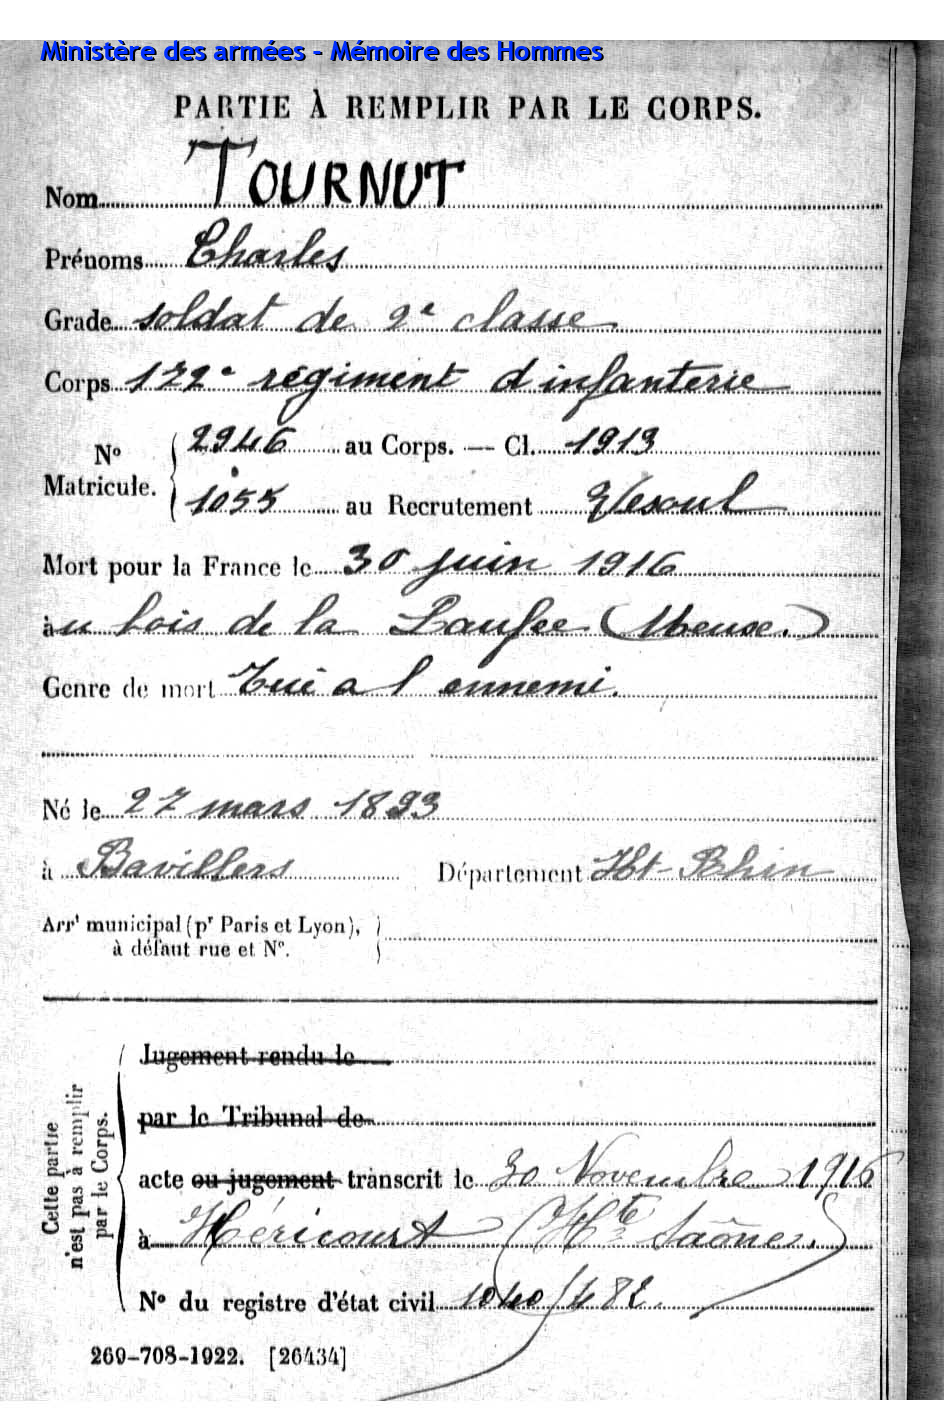 Ministère des armées - Mémoire des Hommes
PARTIE À REMPLIR PAR LE CORPS.
Nom TOURNUT
Prénoms Charles
Grade soldat de 2e classe
Corps 172e régiment d infanterie
N° Matricule. 2946 au Corps. — Cl. 1913
1055 au Recrutement Vesoul
Mort pour la France le 30 juin 1916
à u bois de la Laufee (Meuse.)
Genre de mort Tué a l ennemi.
Né le 27 mars 1893
à Bavillers Département Ht-Rhin
Arrt municipal (pr Paris et Lyon),
à défaut rue et N°.
Cette partie
n'est pas à remplir
par le Corps.
Jugement rendu le
par le Tribunal de
acte ou jugement transcrit le 30 Novembre 1916
à Héricourt (Hte Saône.)
N° du registre d'état civil 1040/482.
269-708-1922. [26434]